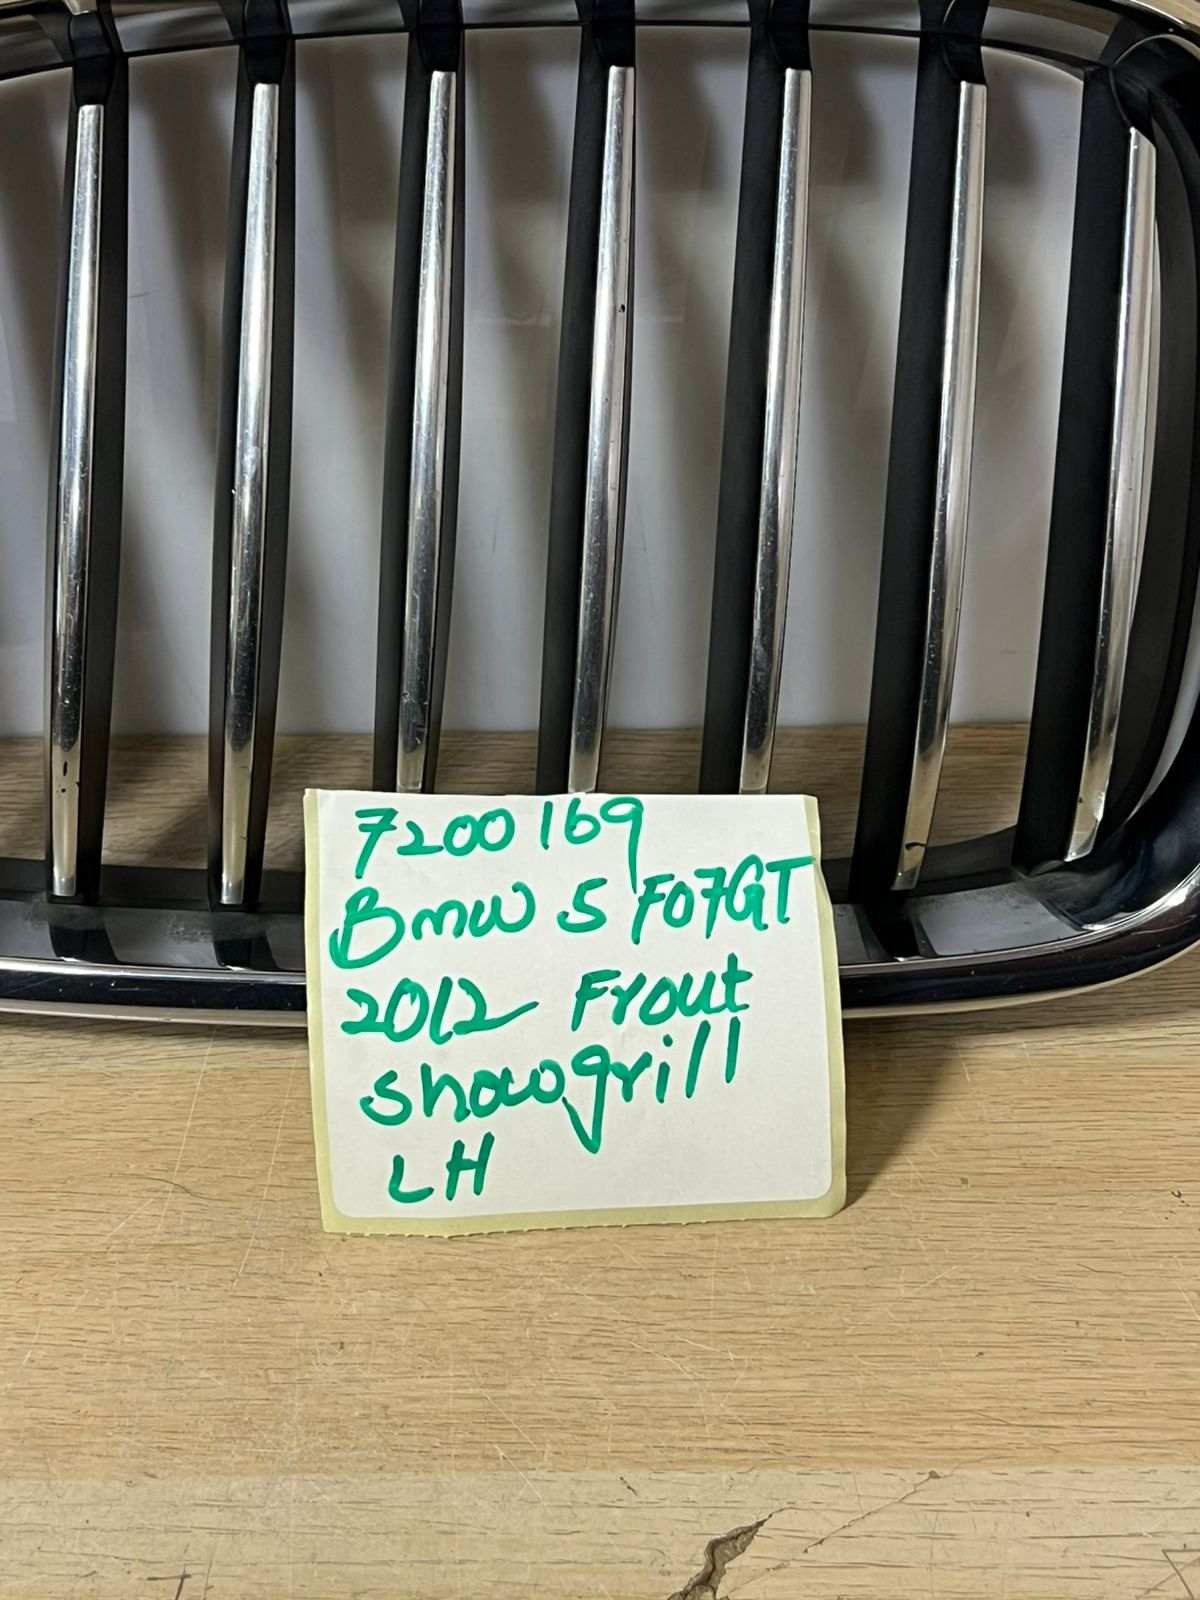 7200169
Bmw 5 F07GT
2012 Frout
showgrill
LH